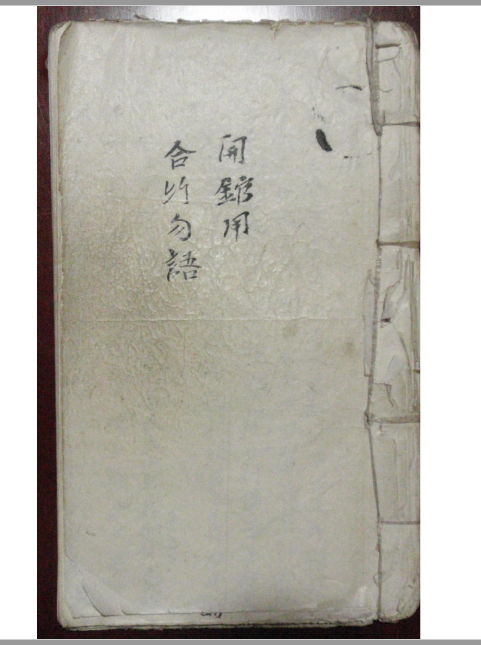 開舘用
合竹勿語